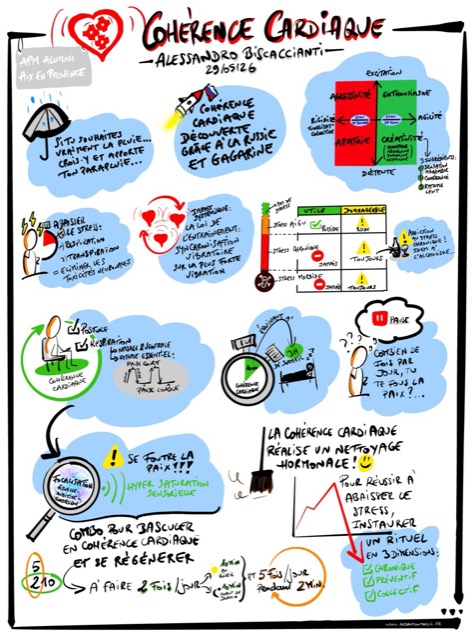 COHÉRENCE CARDIAQUE
ALESSANDRO BISCACCIANTI
29/05/26
APM ALUMNI
AIX EN PROVENCE
SI TU SOUHAITES
VRAIMENT LA PLUIE...
CROIS-Y ET APPORTE
TON PARAPLUIE...
COHÉRENCE
CARDIAQUE
DÉCOUVERTE
GRÂCE À LA RUSSIE
ET GAGARINE
EXCITATION
AGRESSIVITÉ
ENTHOUSIASME
RIGIDITÉ
AGILITÉ
APATHIE
CRÉATIVITÉ
DÉTENTE
3 INGRÉDIENTS:
COHÉRENCE
RYTHME
LENT
ABAISSER
LE STRESS:
RESPIRATION
TRANSPIRATION
= ÉLIMINER LES
TOXICITÉS NEURONALES
LA LOI DE
L'ENTRAINEMENT:
SYNCHRONISATION
VIBRATOIRE
SUR LA PLUS FORTE
VIBRATION
UTILE
DOMMAGEABLE
STRESS AIGU
STRESS CHRONIQUE
JAMAIS
TOUJOURS
STRESS MORBIDE
JAMAIS
TOUJOURS
ADDICTION
AU STRESS
CHRONIQUE !
IDEM À
L'ALCOOLISME...
POSTURE
RESPIRATION
LE RYTHME ESSENTIEL:
PAUSE COURTE
PAUSE LONGUE
COHÉRENCE
CARDIAQUE
COHÉRENCE
CARDIAQUE
PAUSE
COMBIEN DE
FOIS PAR
JOUR, TU
TE FOUS LA
PAIX ?...
FOCALISATION
SE FOUTRE LA
PAIX !!!
HYPER SATURATION
SENSORIELLE
LA COHÉRENCE CARDIAQUE
RÉALISE UN NETTOYAGE
HORMONALE !
POUR RÉUSSIR À
ABAISSER LE
STRESS,
INSTAURER
UN RITUEL
EN 3 DIMENSIONS:
CHRONIQUE
PRÉVENTIF
COLLECTIF
COMBO POUR BASCULER
EN COHÉRENCE CARDIAQUE
ET SE RÉGÉNÉRER
5
2 10
À FAIRE 2 FOIS/JOUR
ET 5 FOIS/JOUR
PENDANT 2 MIN.